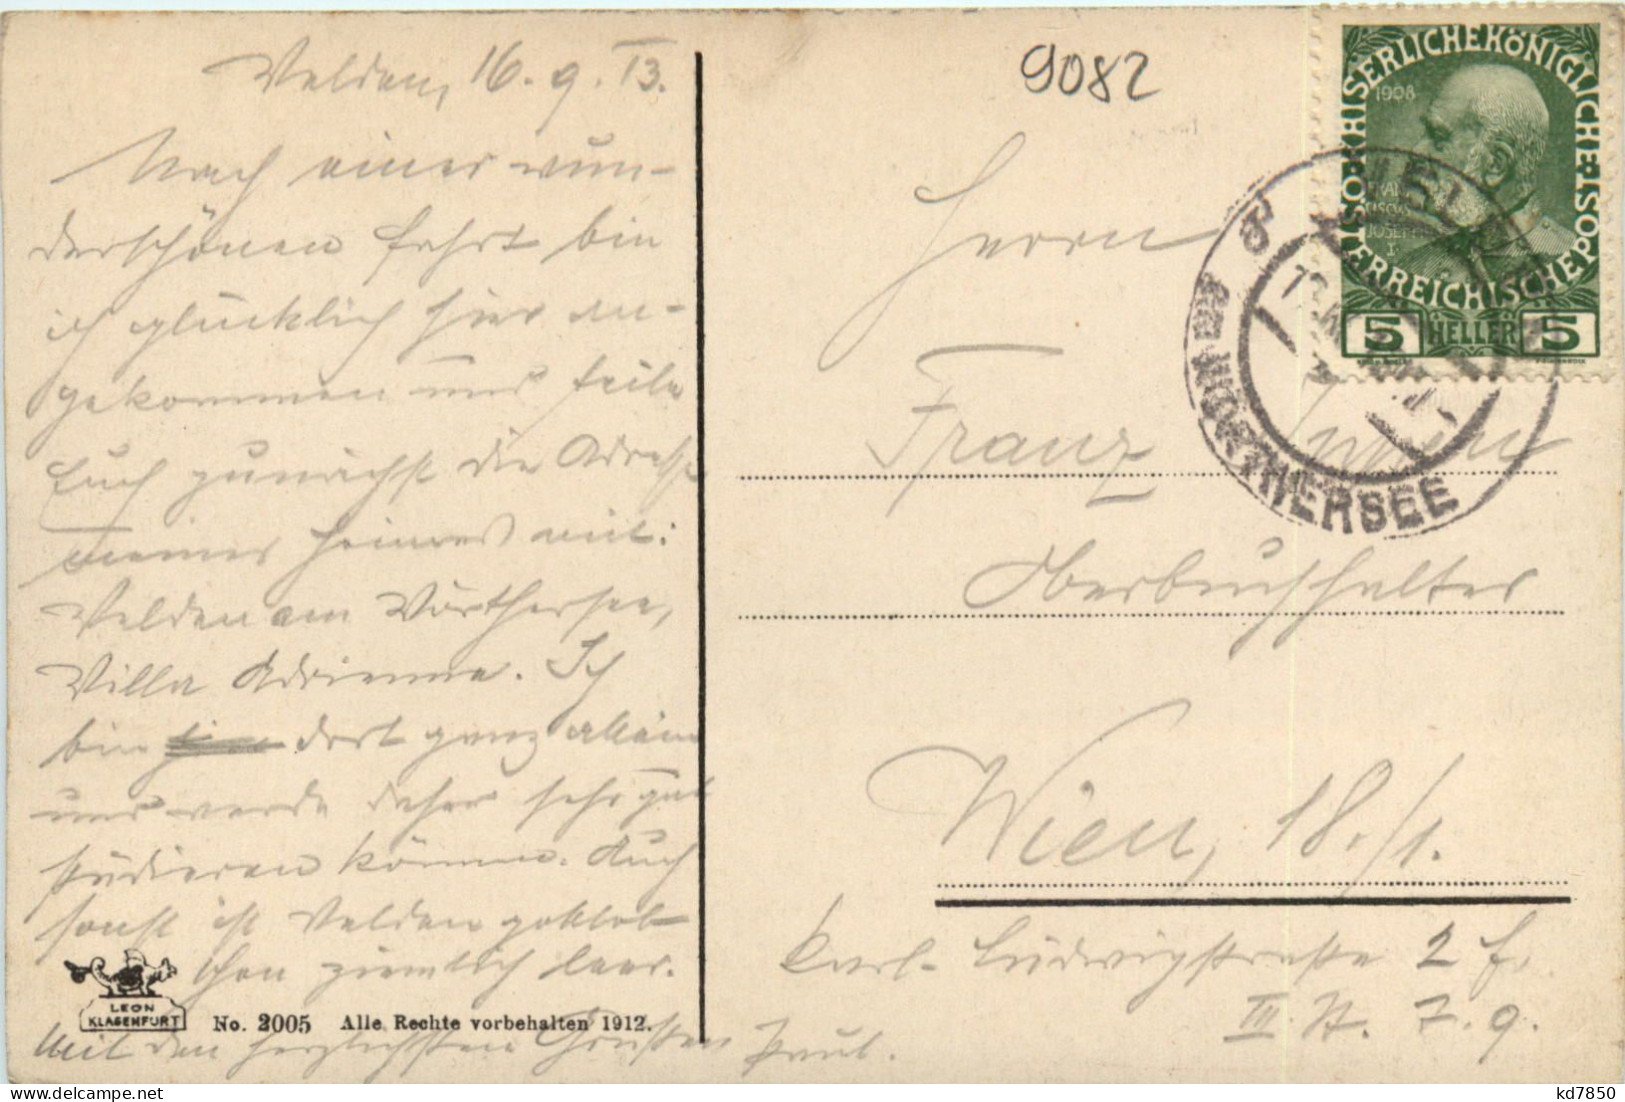 Velden, 16. 9. 13.
Nach einer wun-
derschönen Fahrt bin
ich glücklich hier an-
gekommen und teile
Euch zunächst die Adresse
meines Heimes mit:
Velden am Wörthersee,
Villa Adrienne. Ich
bin dort ganz allein
und werde daher sehr gut
studieren können. Auch
sonst ist Velden gottlob
schon ziemlich leer.
Mit den herzlichsten Grüßen Paul.
LEON
KLAGENFURT
No. 2005 Alle Rechte vorbehalten 1912.
9082
KAISERLICHEKÖNIGLICHE
ÖSTERREICHISCHEPOST
1908
FRANZ
JOSEPH
I
5 HELLER 5
WÖRTHERSEE
Herrn
Franz
Oberbuchhalter
Wien, 18./1.
Karl-Ludwigstraße 2 f.
III. St. T. 9.
kd7850